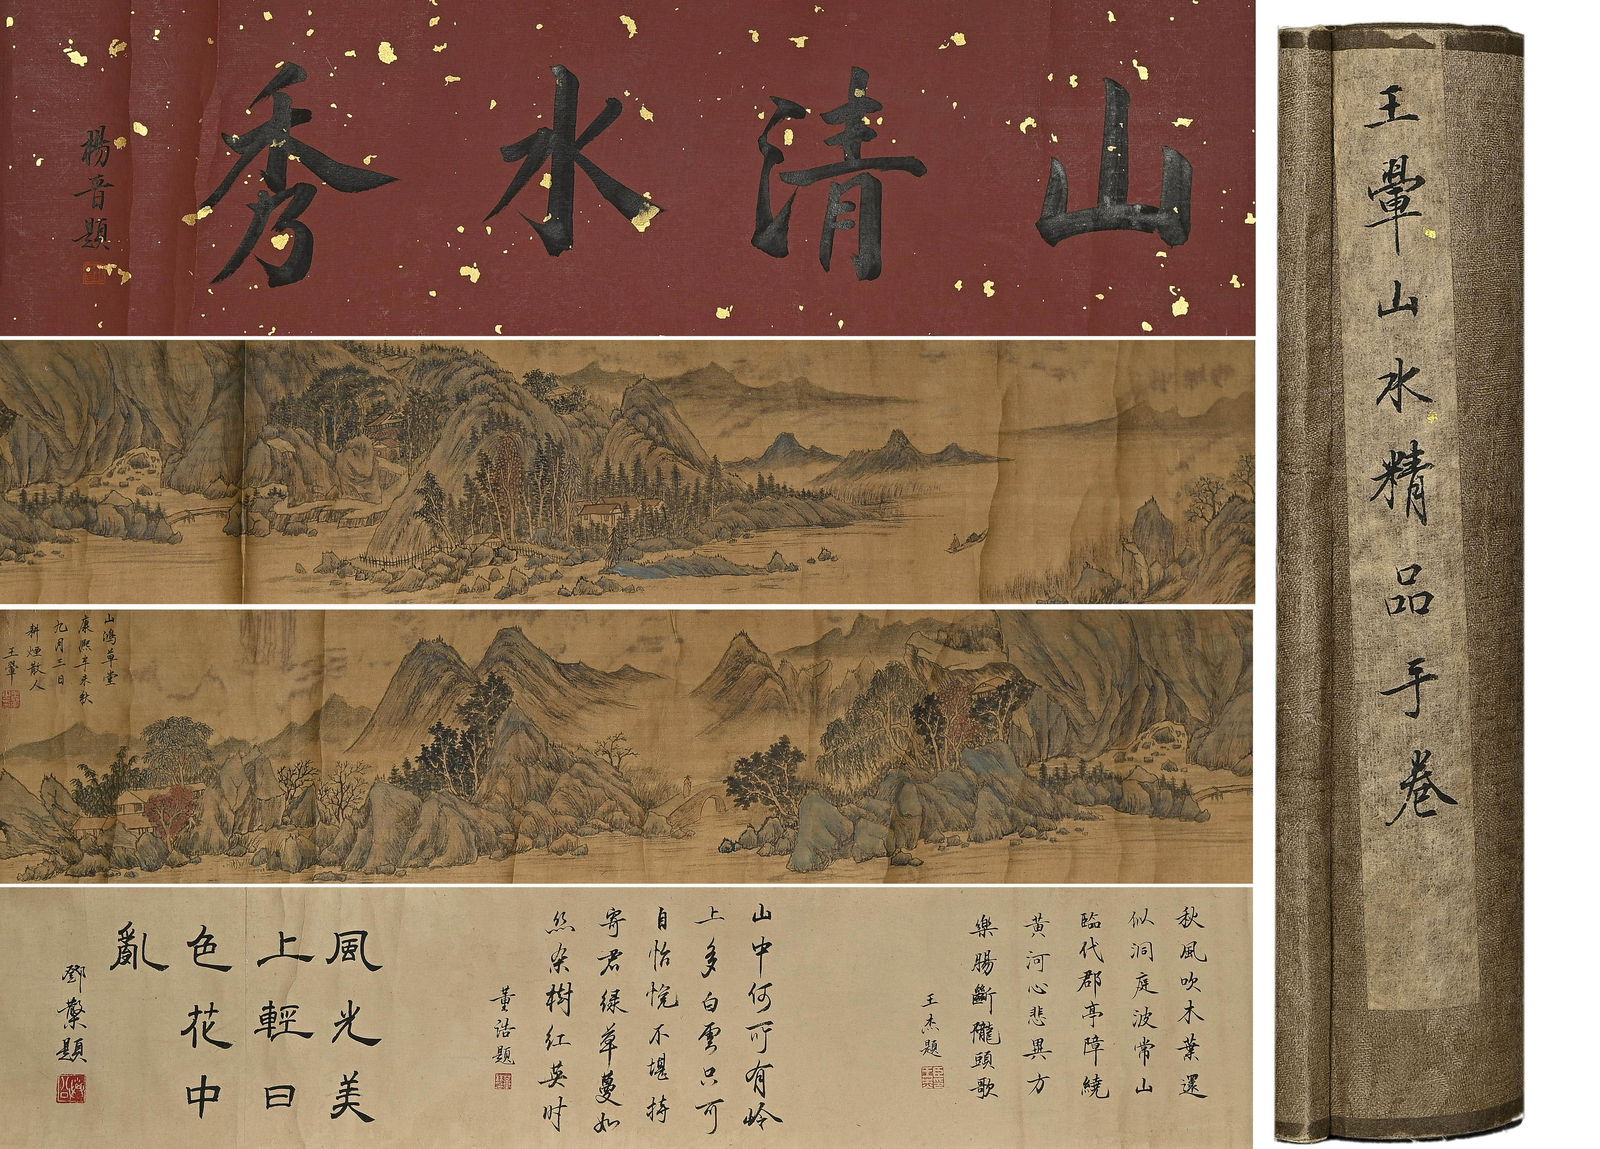 山清水秀
楊晋題
山鴻草堂
康熙辛未秋
九月三日
耕煙散人
王翬
秋風吹木葉還
似洞庭波常山
臨代郡亭障繞
黃河心悲異方
樂腸斷隴頭歌
王杰題
山中何所有岭
上多白雲只可
自怡悅不堪持
寄君绿草蔓如
丝杂樹红英时
董诰題
風光美
上輕日
色花中
亂
鄧繁題
王翬山水精品手卷